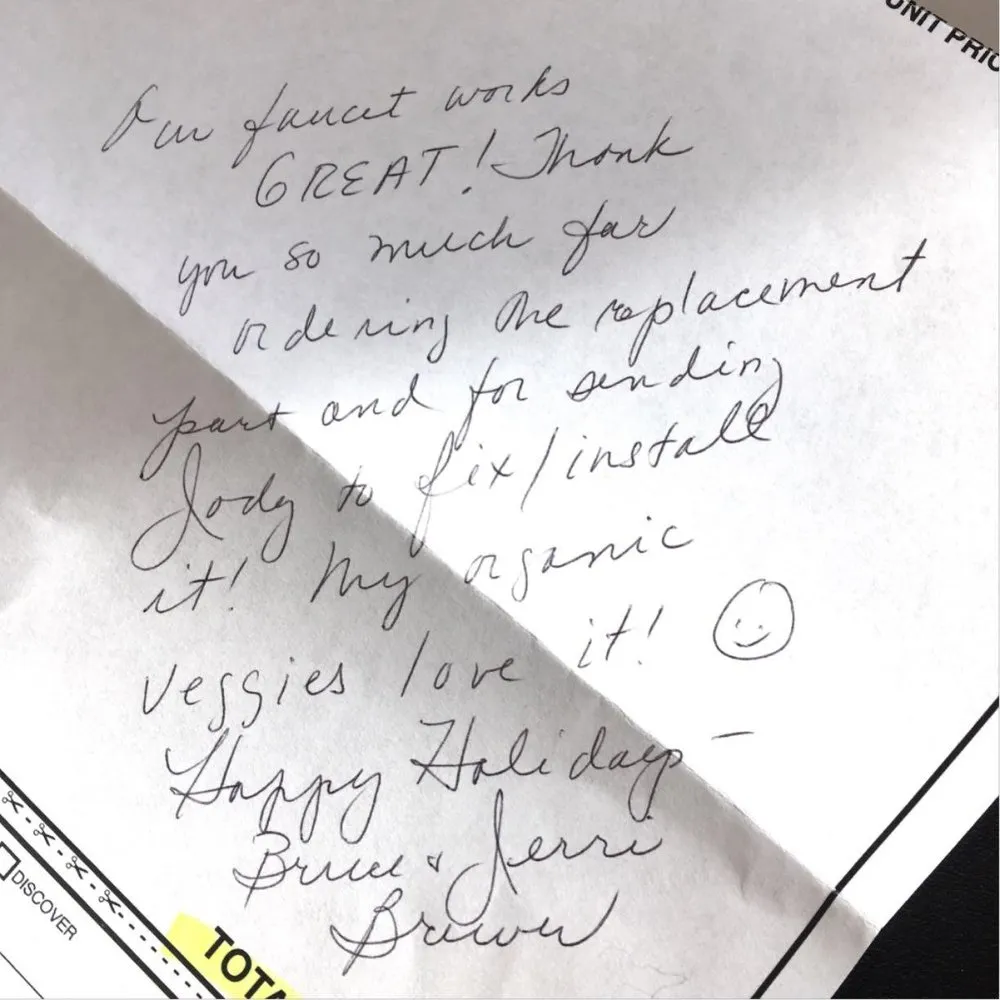 UNIT PRIC
Our faucet works
GREAT! Thank
you so much for
ordering the replacement
part and for sending
Jody to fix/install
it! My organic
veggies love it!
Happy Holidays -
Bruce & Jerri
DISCOVER
TOTA